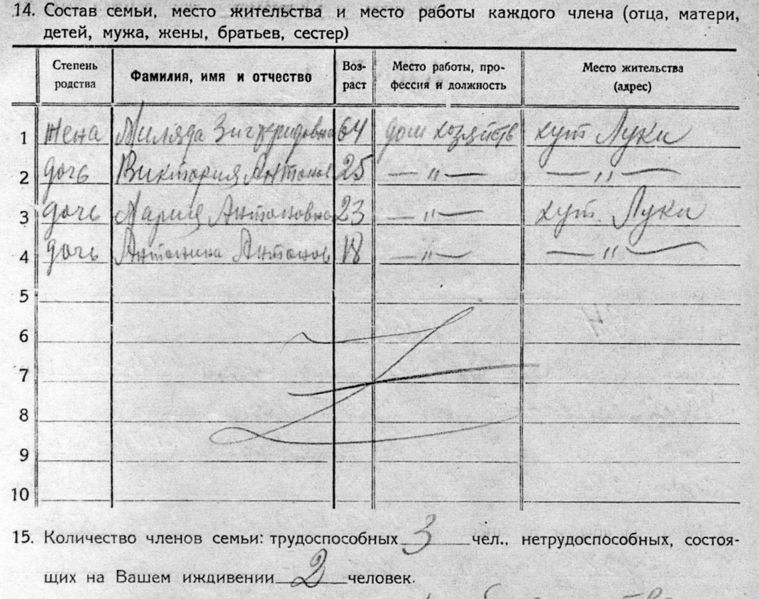 14. Состав семьи, место жительства и место работы каждого члена (отца, матери,
детей, мужа, жены, братьев, сестер)
Степень родства Фамилия, имя и отчество Возраст Место работы, профессия и должность Место жительства (адрес)
1 жена Миляда Зигфридовна 64 дом хозяйств хут Луки
2 дочь Виктория Антонов 25 — " — — " —
3 дочь Мария Антоновна 23 — " — хут. Луки
4 дочь Антонина Антонов 18 — " — — " —
5
6
7
8
9
10
15. Количество членов семьи: трудоспособных 3 чел., нетрудоспособных, состоя-
щих на Вашем иждивении 2 человек.